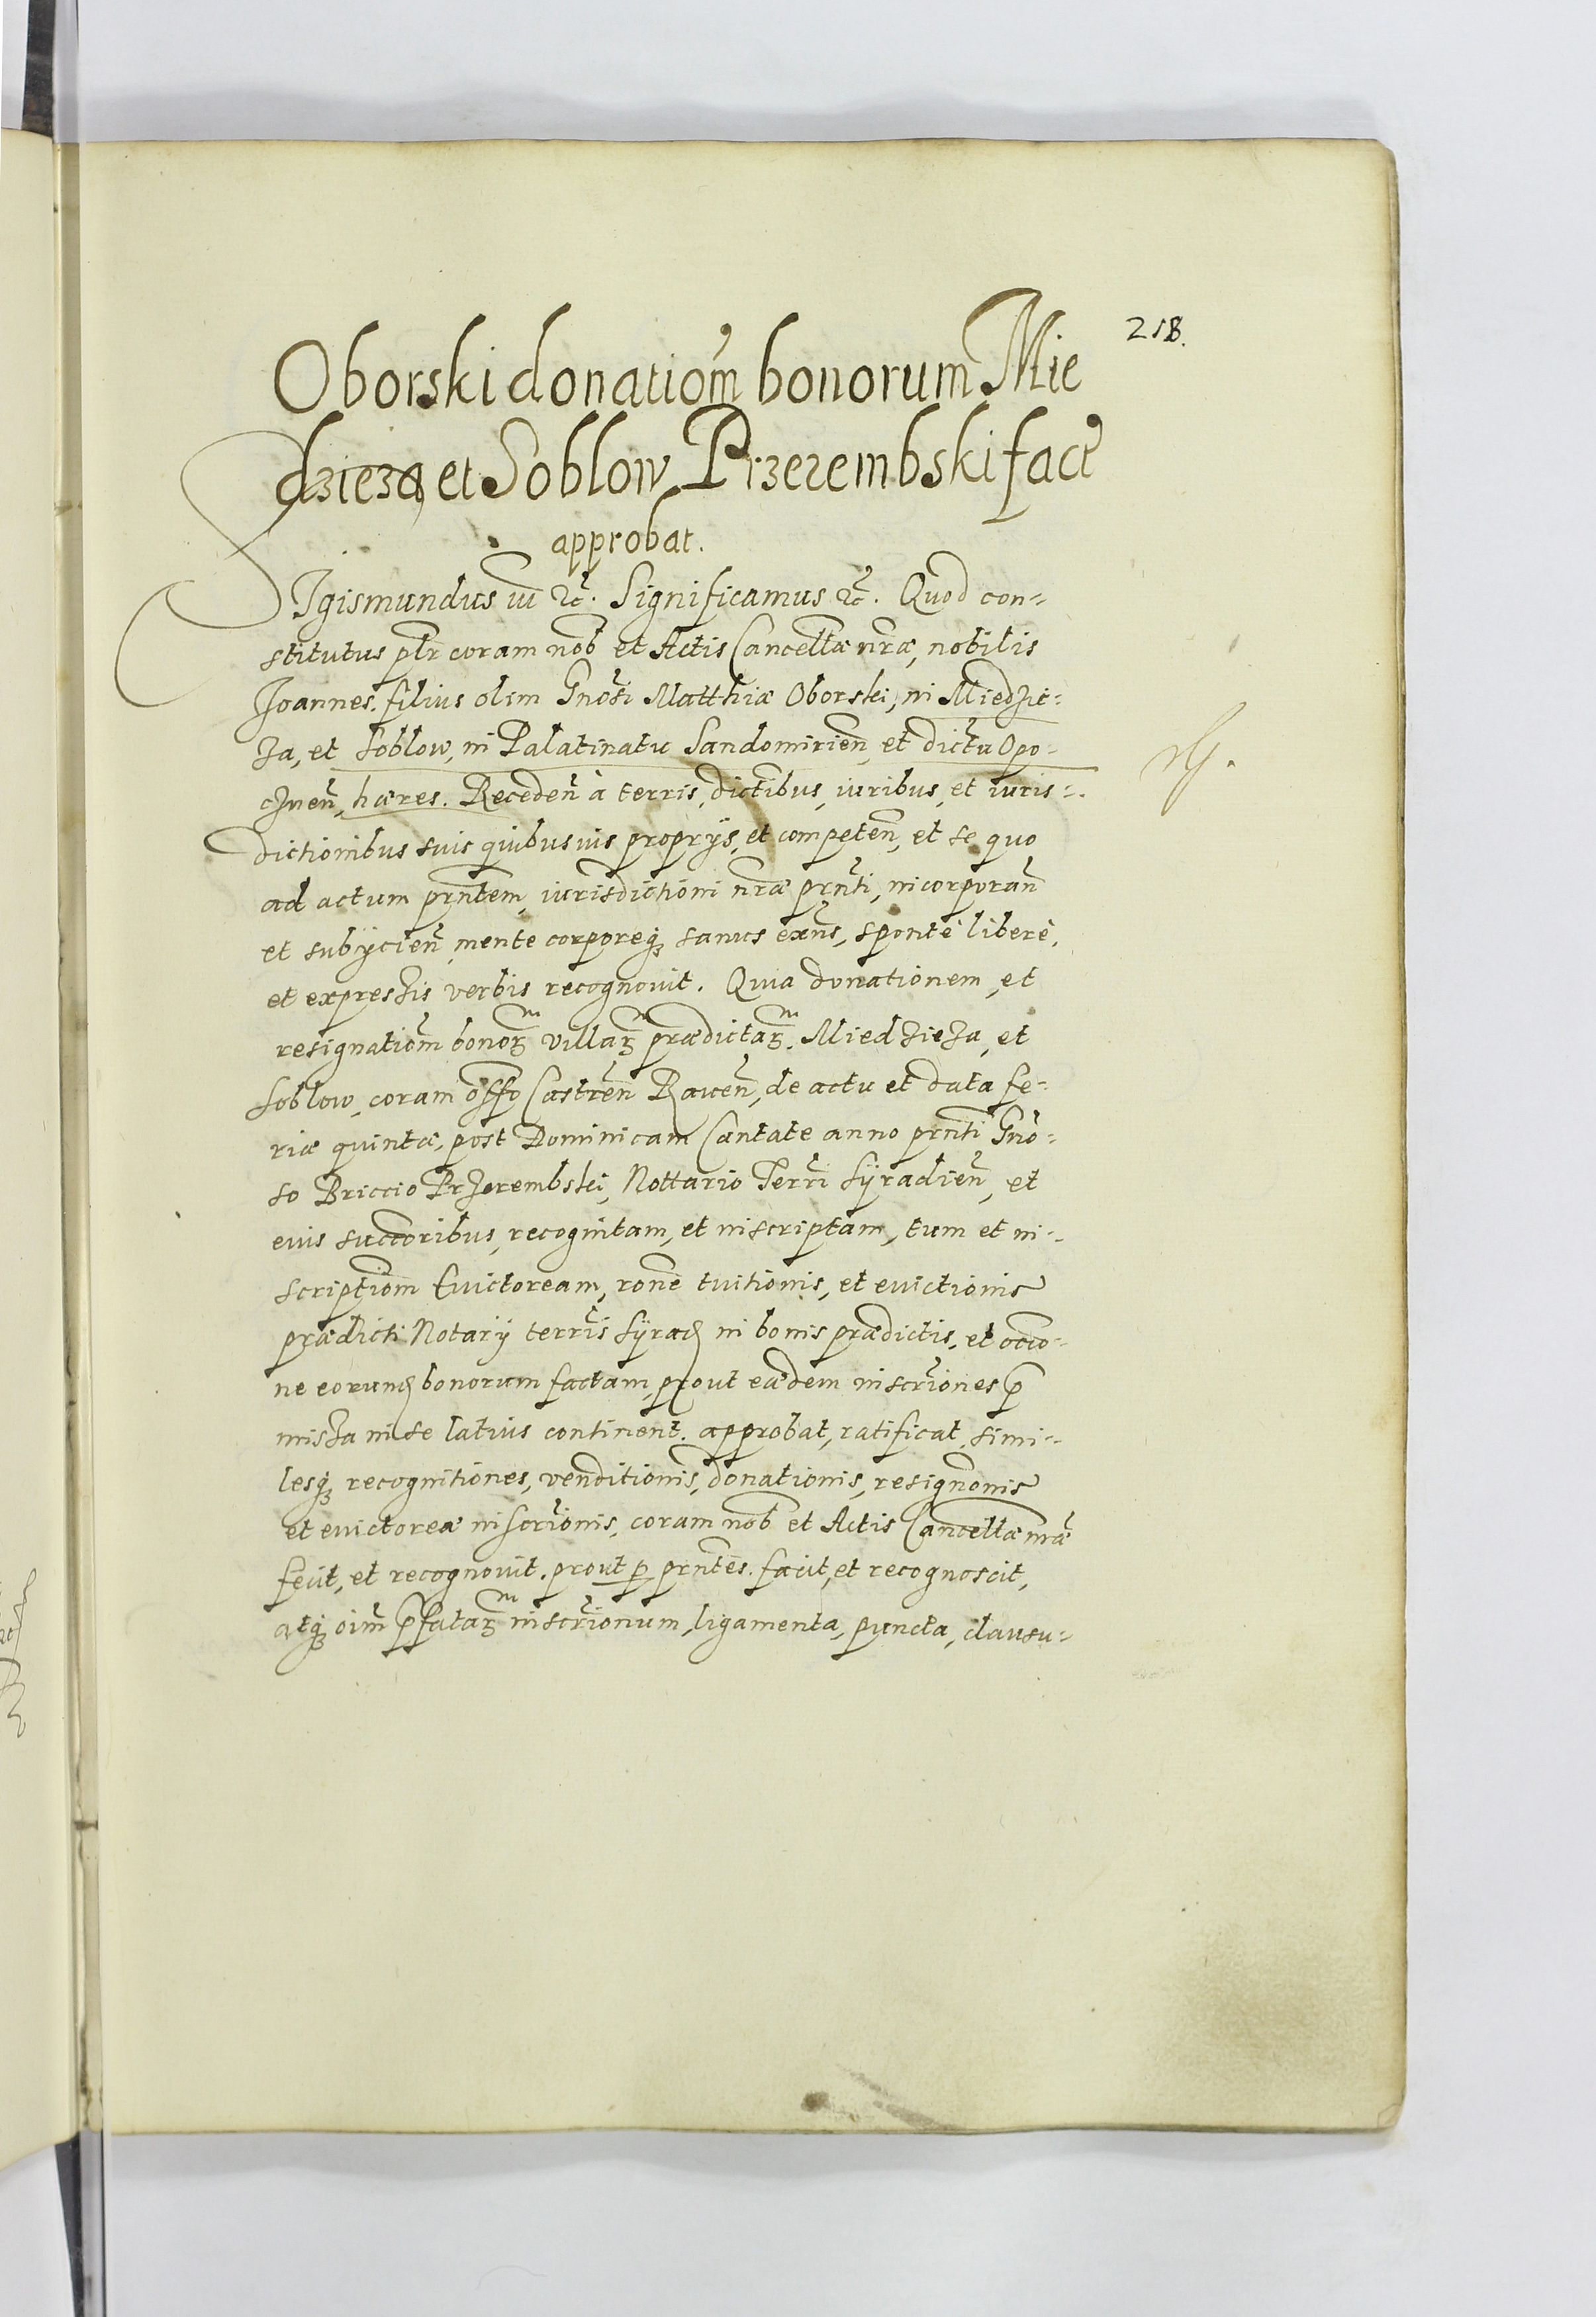 218.
Oborski donatiom̃ bonorum Mie
dzieza et Soblow Przerembski fact̃
approbat.
SIgismundus iii ⁊c̃. Significamus ⁊c̃. Quod con=
stitutus pl̃r coram nob̃ et Actis Cancell̃æ nr̃æ, nobilis
Joannes. filius olim Gnõsi Matthiæ Oborski, in Miedzie=
za, et Soblow, in Palatinatu Sandomirien̄, et dictũ Opo=
cznen̄, hæres. Receden̄ à terris, dictĩbus, iuribus, et iuris=
dictionibus suis quibusuis proprys, et competen̄, et se quo
ad actum prñtem, iurisdictioni nr̃æ prñti, incorporan̄
et subÿcien̄, mente corporeqꝫ sanus exñs, sponte libere,
et expressis verbis recognouit. Quia donationem, et
resignatiom̃ bonorꝫ villarꝫ prædictarꝫ. Miedzieza, et
Soblow, coram offõ Castren̄ Rauen̄, de actu et data fe=
riæ quintæ, post Dominicam Cantate anno prñti Gnõ=
so Briccio Przerembski, Nottario Terrĩ Syradien̄, et
eius succõribus, recognitam, et inscriptam, tum et in=
scriptiom̃ Euictoream, rõne tuitionis, et euictionis
prædicti Notarÿ terrĩs Syraꝺ in bonis prædictis, et occĩo=
ne eorunꝺ bonorum factam, prout eædem inscrĩones p̃
missa in se latius continent. approbat, ratificat, simi=
lesqꝫ recognitiones, venditionis, donationis, resignõnis
et euictoreæ inscrĩonis, coram nob̃ et Actis Cancell̃æ nr̃æ
fecit, et recognouit. prout ꝑ prñtes. facit, et recognoscit,
atqꝫ oim̃ p̃fatarꝫ inscrĩonum, ligamenta, puncta, clausu=